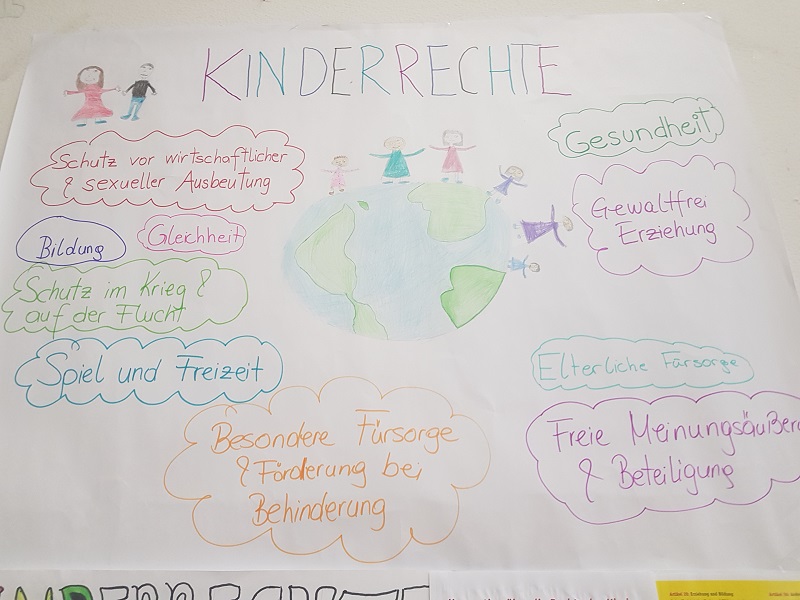 KINDERRECHTE
Schutz vor wirtschaftlicher
& sexueller Ausbeutung
Gesundheit
Gewaltfrei
Erziehung
Bildung
Gleichheit
Schutz im Krieg &
auf der Flucht
Spiel und Freizeit
Elterliche Fürsorge
Besondere Fürsorge
& Förderung bei
Behinderung
Freie Meinungsäußer
& Beteiligung